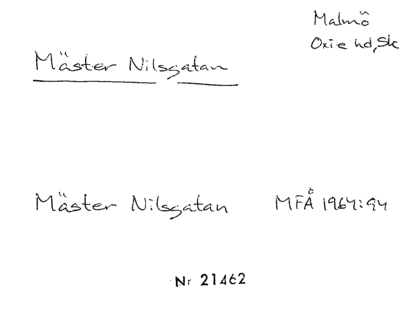 Malmö
Oxie hd, Sk
Mäster Nilsgatan
Mäster Nilsgatan MFÅ 1964:94
Nr 21462